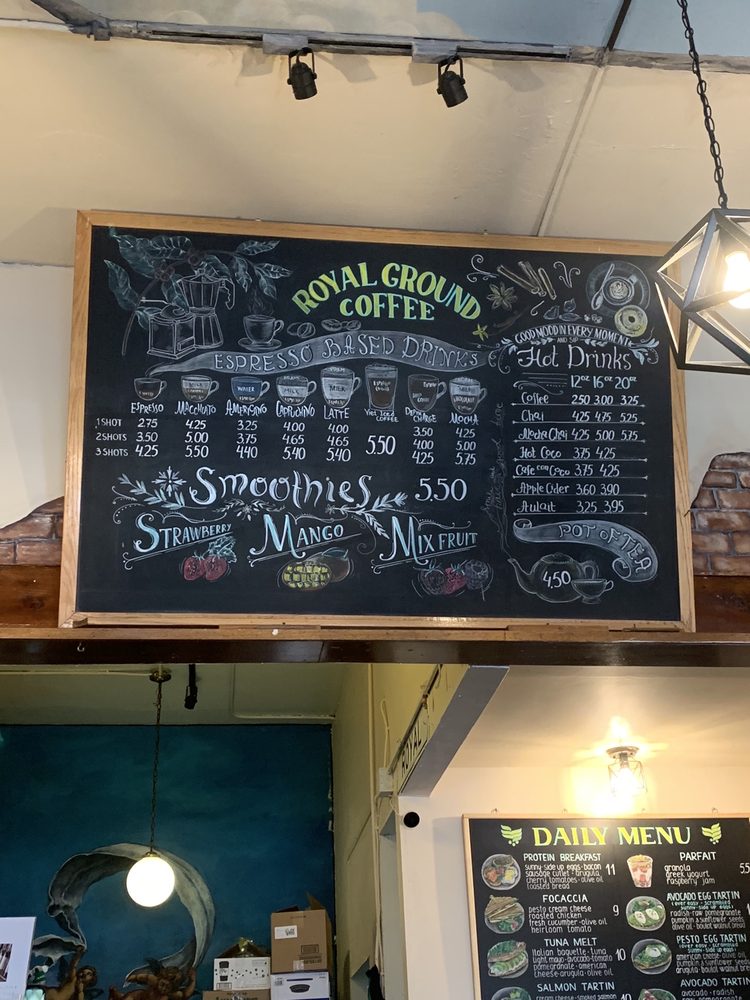 ROYAL GROUND
COFFEE
ESPRESSO BASED DRINKS
ESPRESSO MACCHIATO AMERICANO CAPPUCINO LATTE VIET ICED COFFEE MOCHA
1 SHOT 2.75 4.25 3.25 4.00 4.00 3.50 4.25
2 SHOTS 3.50 5.00 3.75 4.65 4.65 5.50 4.00 5.00
3 SHOTS 4.25 5.50 4.40 5.40 5.40 4.25 5.75
Smoothies 5.50
STRAWBERRY MANGO MIX FRUIT
GOOD MOOD IN EVERY MOMENT
AND SIP
Hot Drinks
12oz 16oz 20oz
Coffee 2.50 3.00 3.25
Chai 4.25 4.75 5.25
Mocha Chai 4.25 5.00 5.75
Hot Coco 3.75 4.25
Cafe con Coco 3.75 4.25
Apple Cider 3.60 3.90
Aulait 3.25 3.95
POT OF TEA
4.50
ROYAL
DAILY MENU
PROTEIN BREAKFAST 11
sunny-side up eggs-bacon
sausage cutlet - arugula
cherry tomatoes - olive oil
toasted bread
FOCACCIA 9
pesto cream cheese
roasted chicken
fresh cucumber - olive oil
heirloom tomato
TUNA MELT 10
italian baguette - tuna
light mayo-avocado-tomato
pomegranate - american
cheese-arugula-olive oil
SALMON TARTIN
cream cheese - smoked salmon
PARFAIT 5.5
granola
greek yogurt
raspberry jam
AVOCADO EGG TARTIN
(over easy - scrambled
sunny-side up eggs)
radish-raw pomegranate
pumpkin & sunflower seeds
olive oil - walnut bread
PESTO EGG TARTIN
(over easy - scrambled
sunny-side up eggs)
american cheese
pumpkin & sunflower seeds
arugula - olive oil
AVOCADO TARTIN
avocado - radish